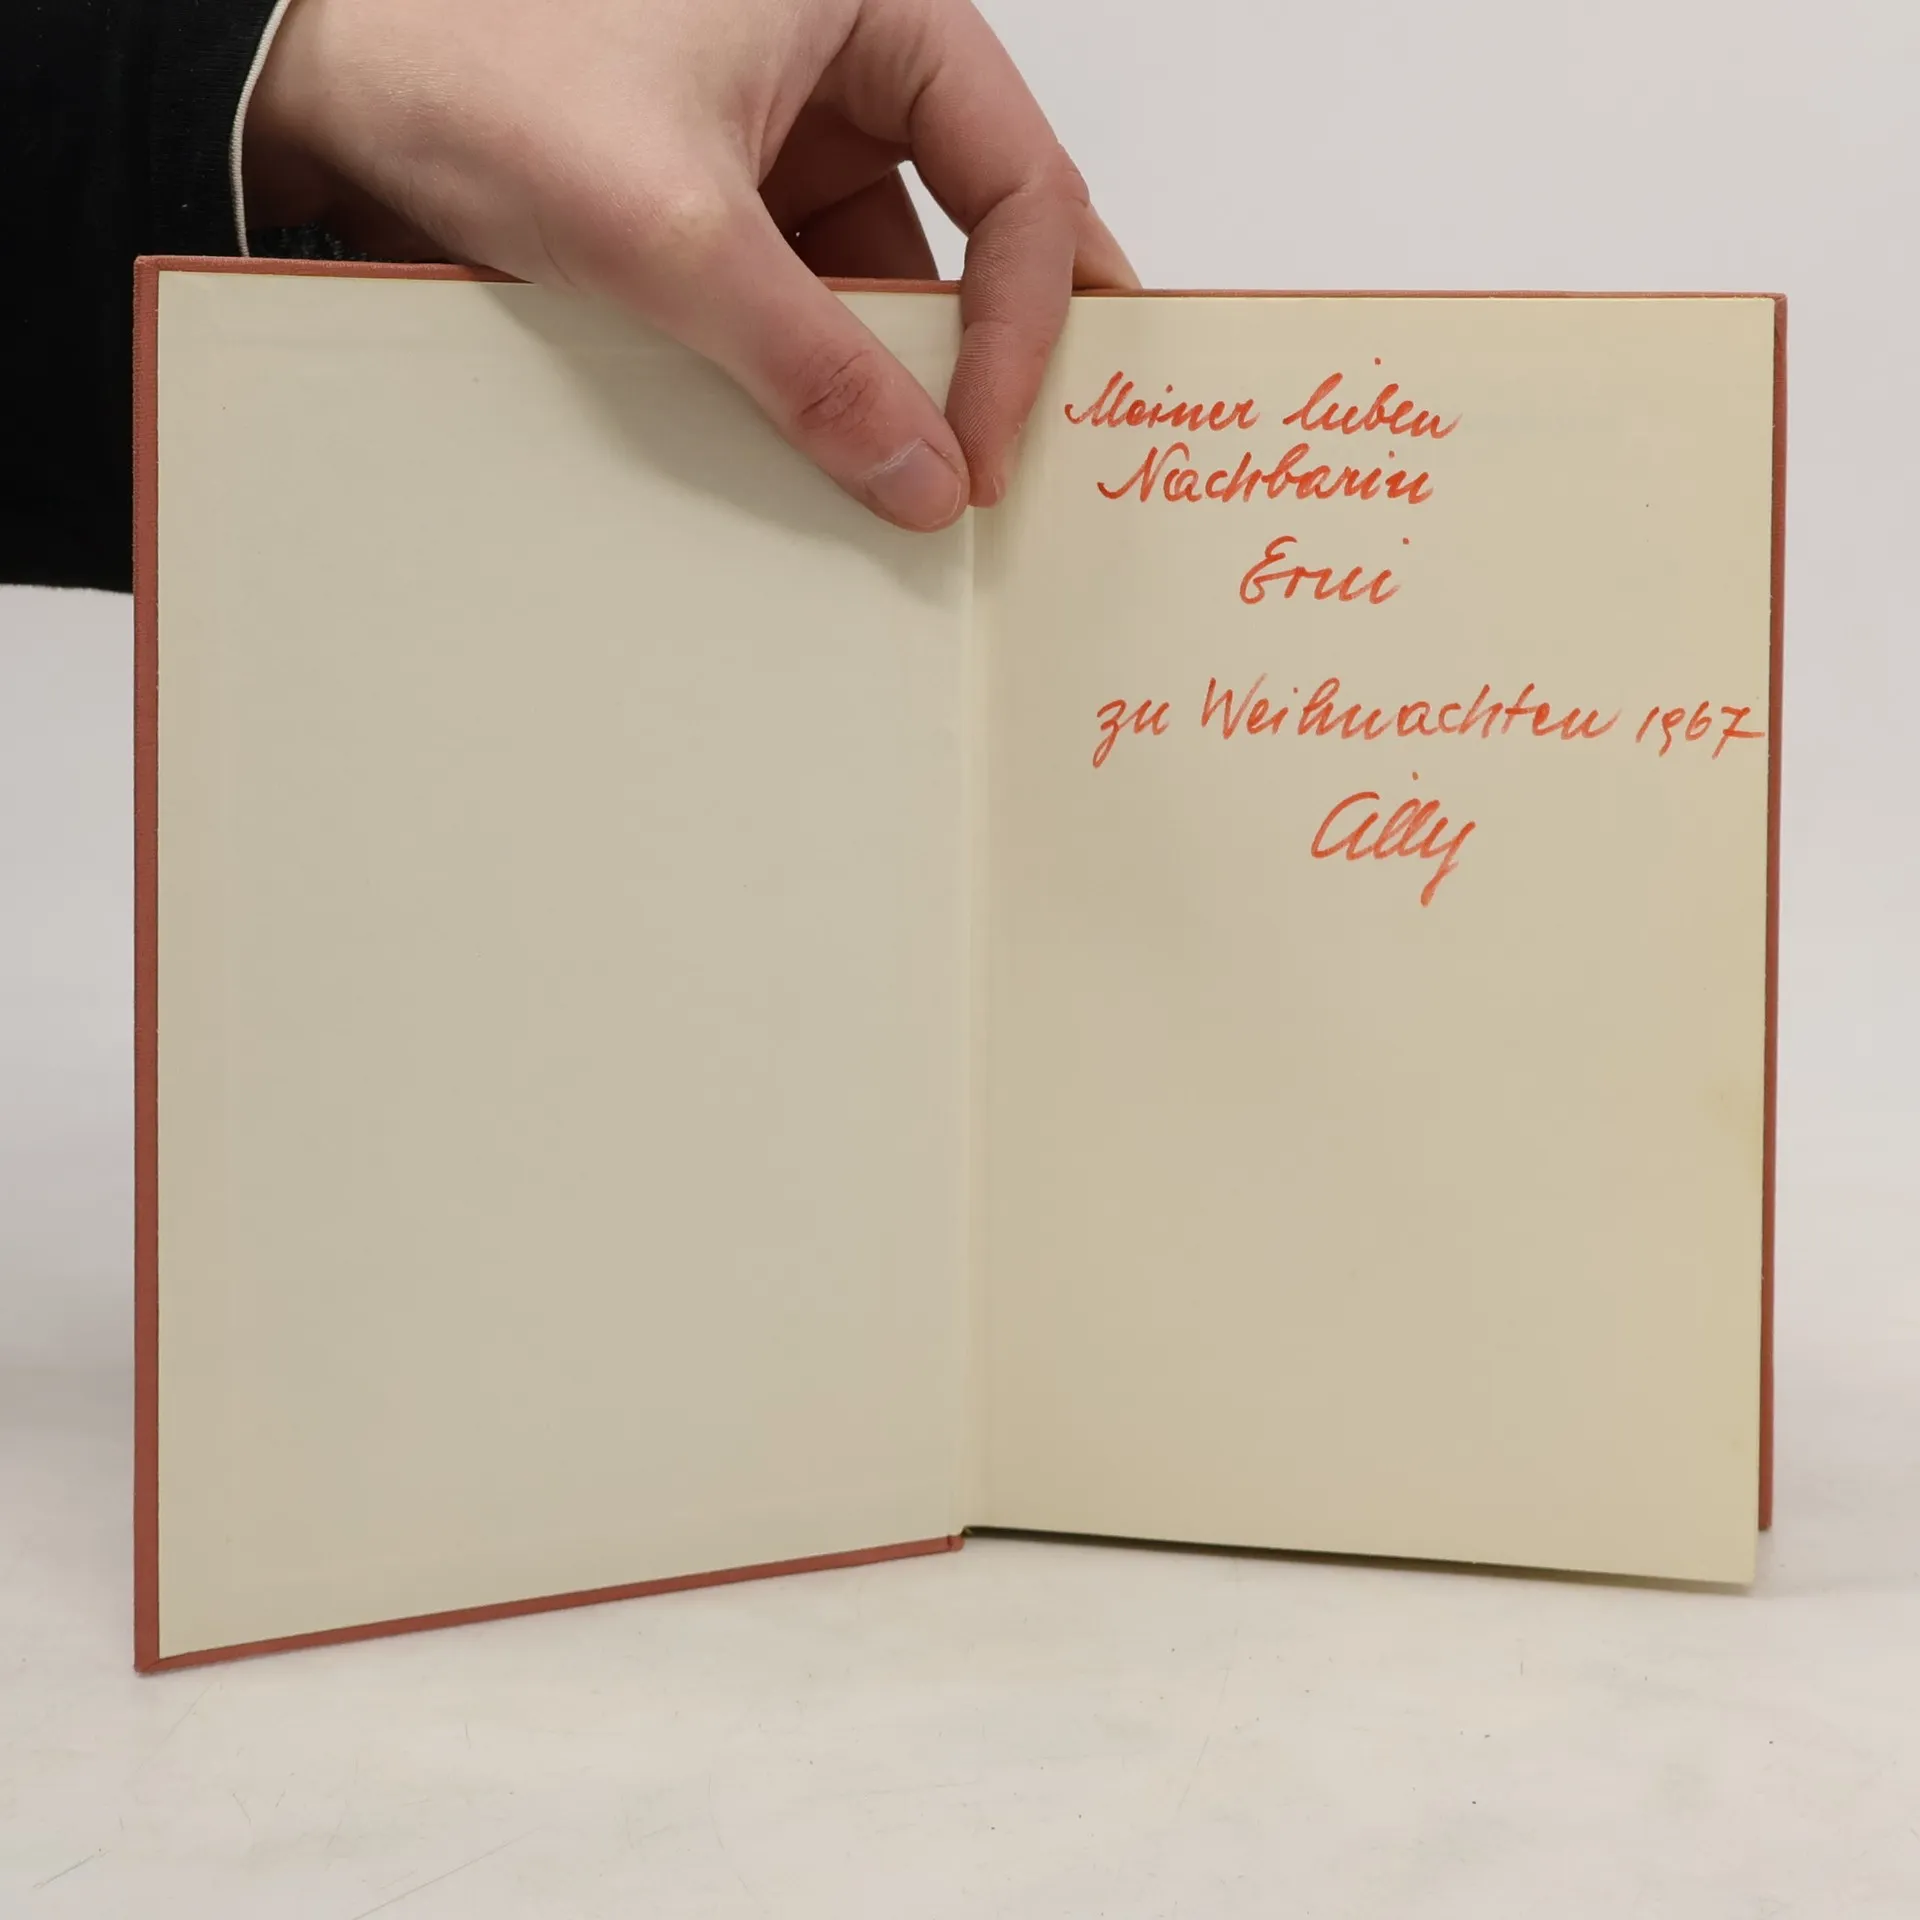 Meiner lieben
Nachbarin
Erni
zu Weihnachten 1967
Cilly